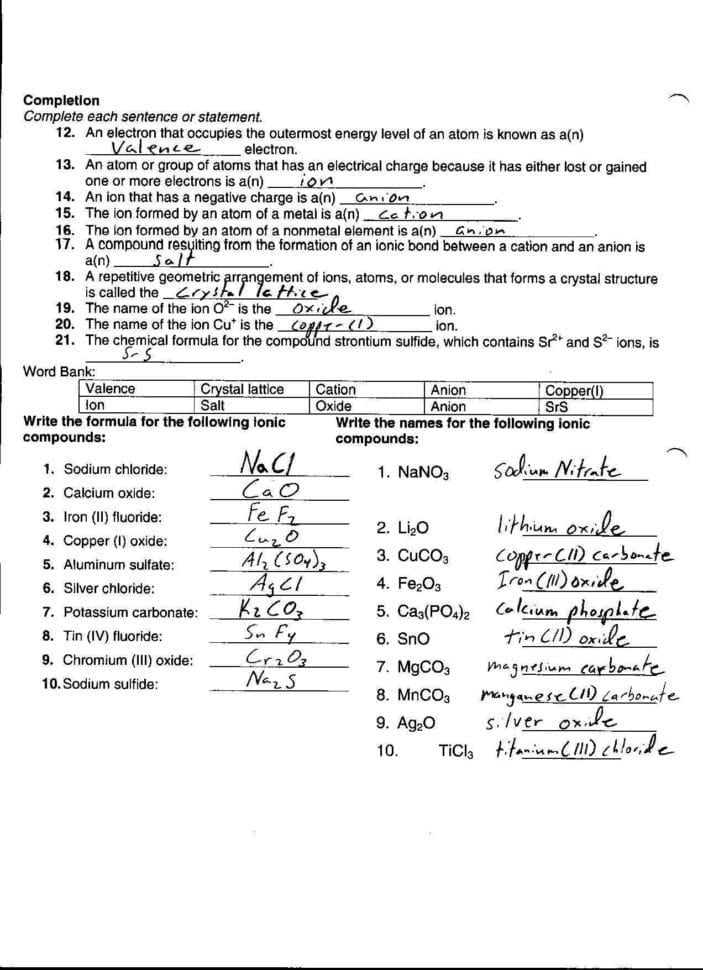 Completion
Complete each sentence or statement.
12. An electron that occupies the outermost energy level of an atom is known as a(n)
Valence electron.
13. An atom or group of atoms that has an electrical charge because it has either lost or gained
one or more electrons is a(n) ion.
14. An ion that has a negative charge is a(n) anion.
15. The ion formed by an atom of a metal is a(n) Cation.
16. The ion formed by an atom of a nonmetal element is a(n) anion.
17. A compound resulting from the formation of an ionic bond between a cation and an anion is
a(n) Salt.
18. A repetitive geometric arrangement of ions, atoms, or molecules that forms a crystal structure
is called the Crystal lattice.
19. The name of the ion O²⁻ is the Oxide ion.
20. The name of the ion Cu⁺ is the copper-(I) ion.
21. The chemical formula for the compound strontium sulfide, which contains Sr²⁺ and S²⁻ ions, is
SrS.
Word Bank:
Valence Crystal lattice Cation Anion Copper(I)
Ion Salt Oxide Anion SrS
Write the formula for the following ionic
compounds:
1. Sodium chloride: NaCl
2. Calcium oxide: CaO
3. Iron (II) fluoride: FeF₂
4. Copper (I) oxide: Cu₂O
5. Aluminum sulfate: Al₂(SO₄)₃
6. Silver chloride: AgCl
7. Potassium carbonate: K₂CO₃
8. Tin (IV) fluoride: SnF₄
9. Chromium (III) oxide: Cr₂O₃
10. Sodium sulfide: Na₂S
Write the names for the following ionic
compounds:
1. NaNO₃ Sodium Nitrate
2. Li₂O lithium oxide
3. CuCO₃ copper-(II) carbonate
4. Fe₂O₃ Iron (III) oxide
5. Ca₃(PO₄)₂ Calcium phosphate
6. SnO tin (II) oxide
7. MgCO₃ magnesium carbonate
8. MnCO₃ manganese (II) carbonate
9. Ag₂O silver oxide
10. TiCl₃ titanium (III) chloride